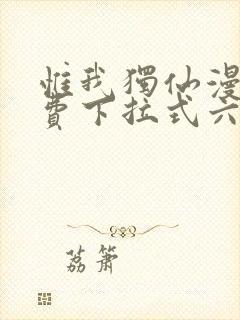 惟我獨仙漫
費下拉式六
荔箫